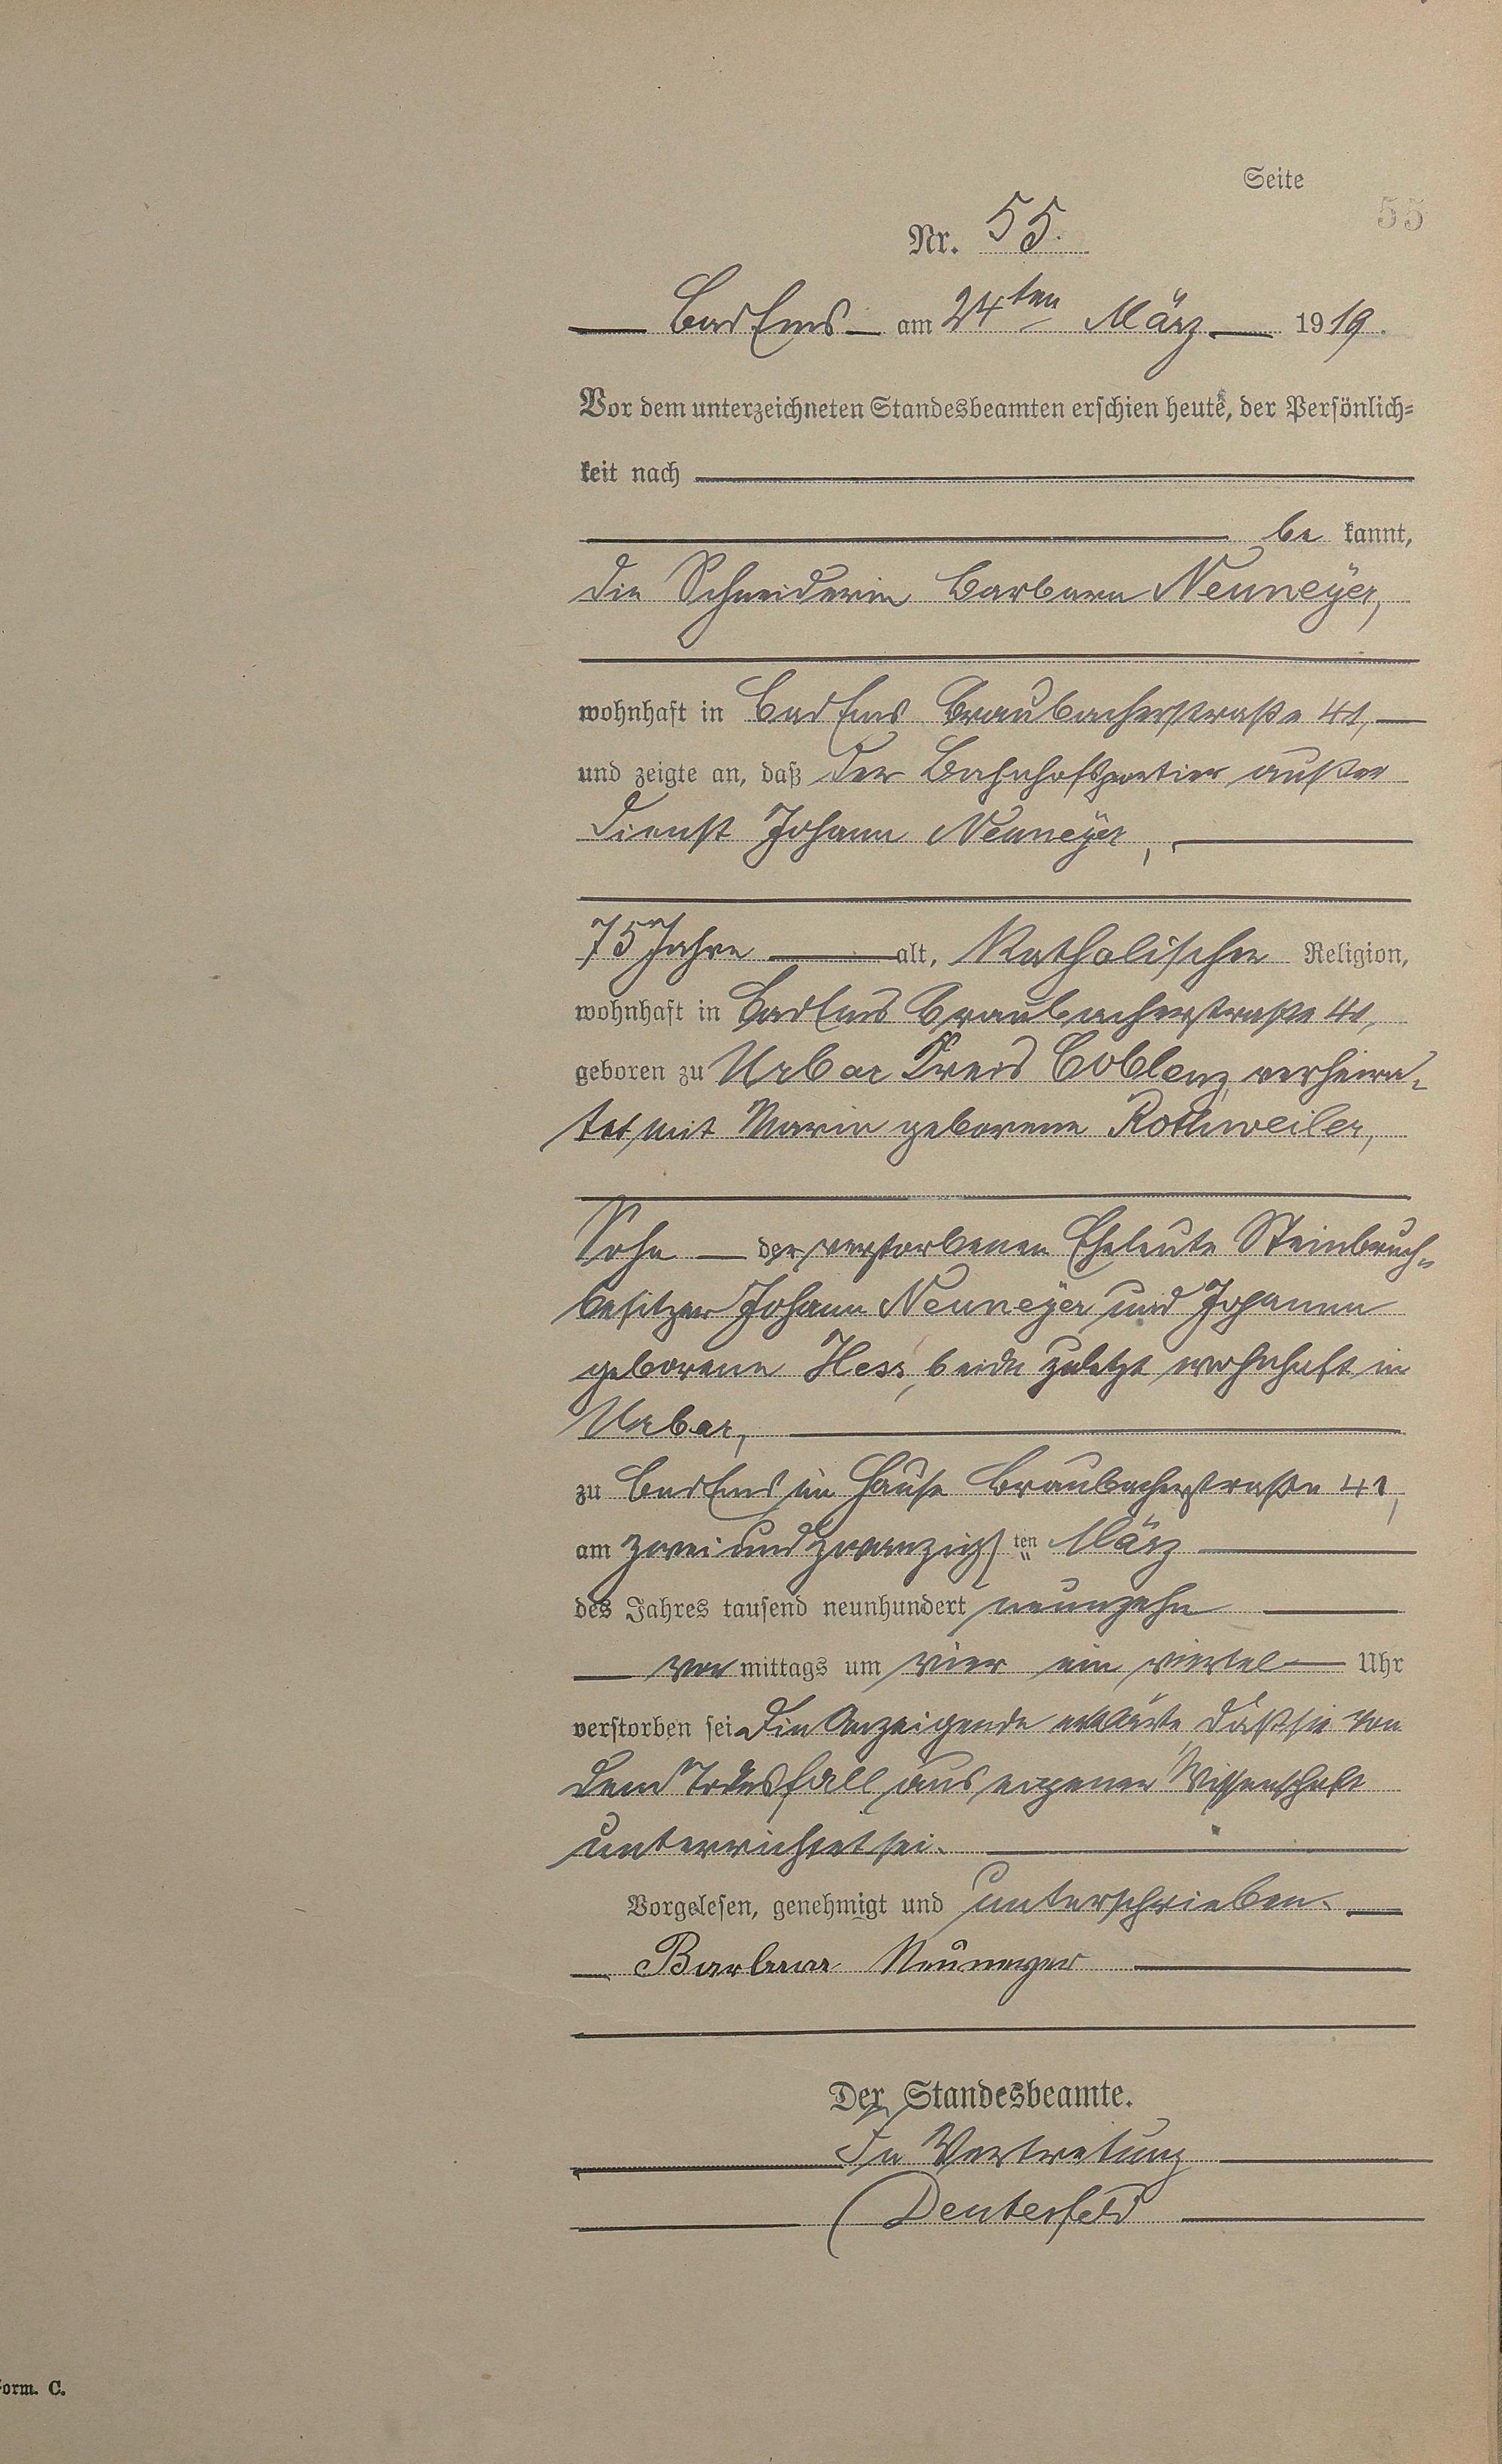 Seite
55
Nr. 55.
Bad Ems am 24ten März 1919.
Vor dem unterzeichneten Standesbeamten erschien heute, der Persönlich=
keit nach
be kannt,
die Schneiderin Barbara Neuneyer,
wohnhaft in Bad Ems Braubacherstraße 41,
und zeigte an, daß der Bahnhofsportier außer
Dienst Johann Neuneyer,
75 Jahre alt, Katholischer Religion,
wohnhaft in Bad Ems Braubacherstraße 41,
geboren zu Urbar Kreis Coblenz, verheira-
tet mit Maria geborene Rothweiler,
Sohn der verstorbenen Eheleute Steinbruch-
besitzer Johann Neuneyer und Johanna
geborene Hess, beide zuletzt wohnhaft in
Urbar,
zu Bad Ems im Hause Braubacherstraße 41,
am zwei und zwanzigsten März
des Jahres tausend neunhundert neunzehn
vor mittags um vier ein viertel Uhr
verstorben sei. Die Anzeigende erklärte, daß sie von
dem Todesfall aus eigener Wissenschaft
unterrichtet sei.
Vorgelesen, genehmigt und unterschrieben.
Barbara Neuneyer
Der Standesbeamte.
In Vertretung
Deuterfeld
Form. C.